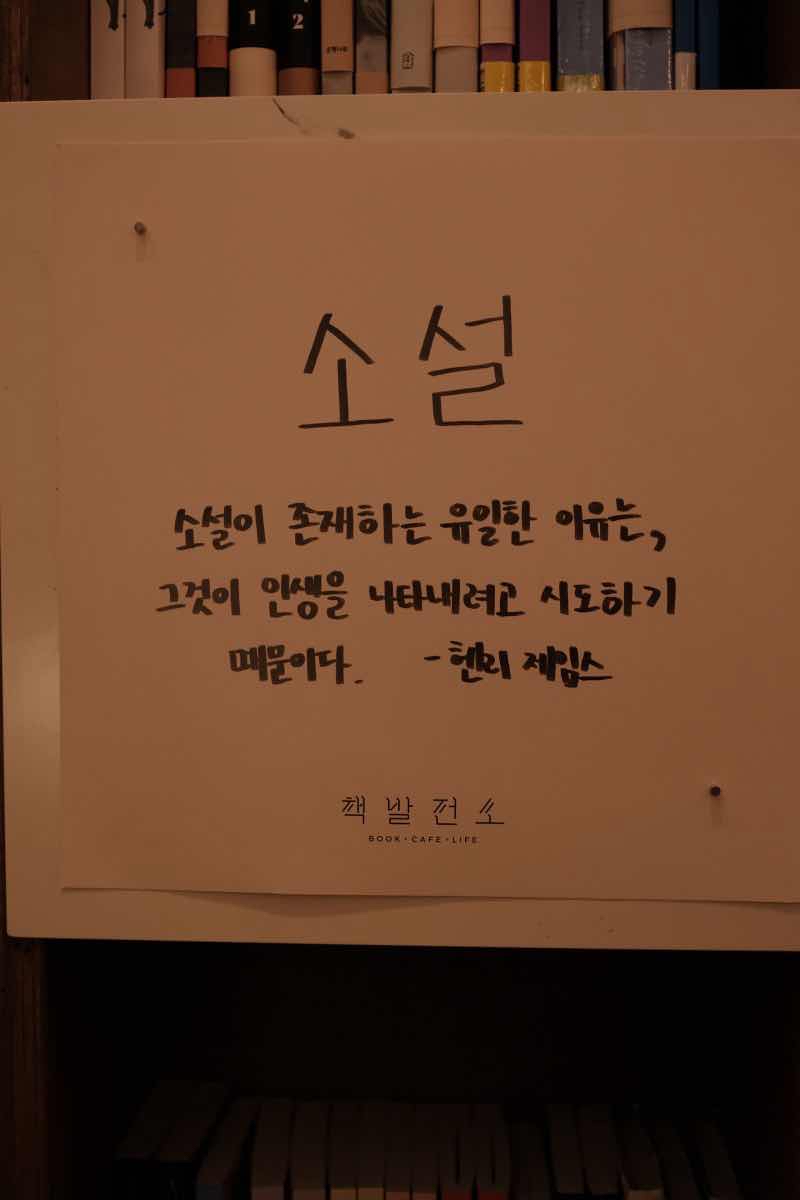 1
2
소설
소설이 존재하는 유일한 이유는,
그것이 인생을 나타내려고 시도하기
때문이다. - 헨리 제임스
책발전소
BOOK · CAFE · LIFE